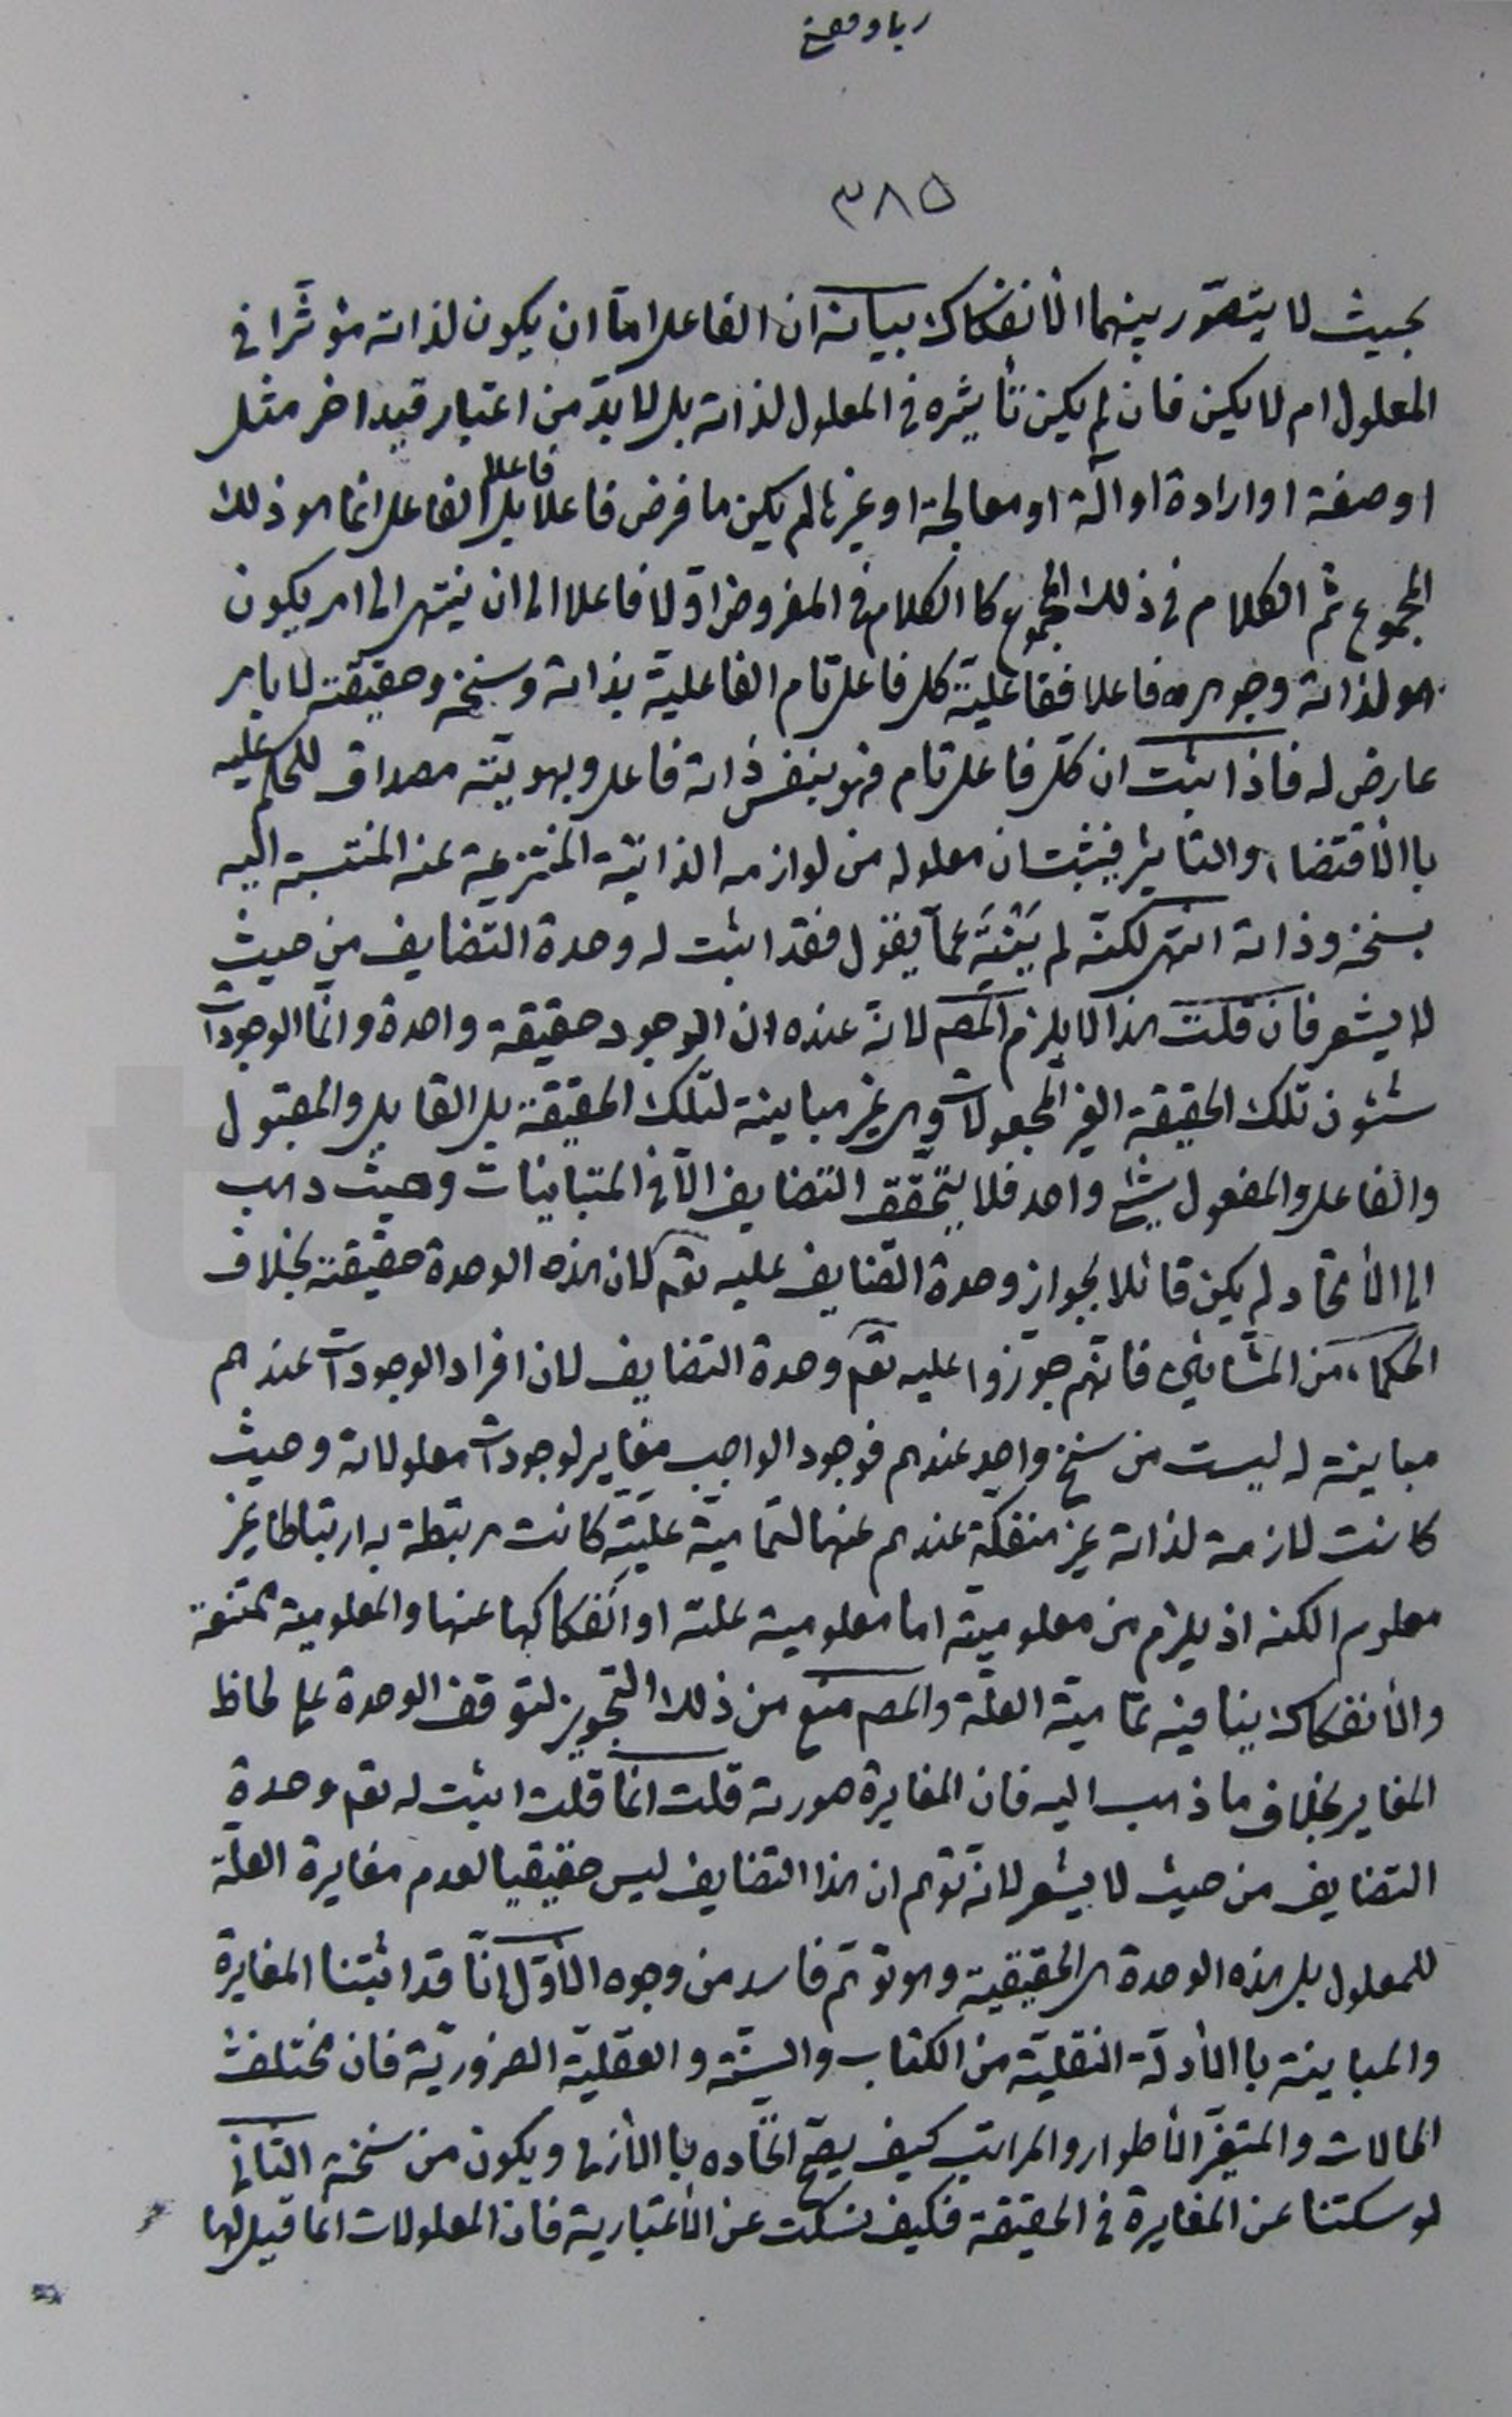 ٣٨٥
بحيث لا يتصوّر بينهما الأنفكاك بيانه ان الفاعل امّا ان يكون لذاته مؤثّرا في
المعلول ام لا يكن فان لم يكن تأثيره في المعلول لذاته بل لا بدّ من اعتبار قيد اخر مثل
او صفة او ارادة او آلة او معالجة او غيرها لم يكن ما فرض فاعلا فاعلا بل الفاعل انما هو ذلك
المجموع ثم الكلام في ذلك المجموع كا الكلام في المفروض اوّلا فاعلا الى ان ينتهى الى امر يكون
هو لذاته وجوهره فاعلا ففاعليّة كل فاعل تام الفاعلية بذاته وسنخه وحقيقته لا بامر
عارض له فاذا ثبت ان كلّ فاعل تام فهو بنفس ذاته فاعل وبهويّته مصداق للحكم عليه
باالأقتضاء والتاثير فيثبت ان معلوله من لوازمه الذاتيّة المنتزعية عنه المنتسبة اليه
بسنخه وذاته انتهى لكنّه لم يَتَنَبَّه عمّا يقول فقد اثبت له وحدة التضايف من حيث
لا يشعر فان قلت هذا لا يلزم المصم لانه عنده ان الوجود حقيقة واحدة وانّما الوجودات
شئون تلك الحقيقة الغير المجعولات وهى غير مباينة لتلك الحقيقة بل القابل والمقبول
والفاعل والمفعول شئ واحد فلا يتحقّق التضايف الّا في المتباينات وحيث ذهب
الى الأتحاد لم يكن قائلا بجواز وحدة التضايف عليه تعم لان هذه الوحدة حقيقة بخلاف
الحكماء من المشائين فانّهم جوّزوا عليه تعم وحدة التضايف لان افراد الوجودات عندهم
مباينة له ليست من سنخ واحد عندهم فوجود الواجب مغاير لوجودات معلولاته وحيث
كانت لازمة لذاته غير منفكّة عندهم عنها لتماميّة عليّته كانت مربتطة به ارتباطا غير
معلوم الكنه اذ يلزم من معلوميّته اما معلومية علته او انفكاكها عنها والمعلومية ممتنعة
والأنفكاك ينافيه تماميّة العلّة والمصم منع من ذلك التجويز لتوقف الوحدة على لحاظ
المغاير بخلاف ما ذهب اليه فان المغايرة صورية قلت انّما قلت اثبت له تعم وحدة
التضايف من حيث لا يشعر لانّه توهم ان هذا التضايف ليس حقيقيا لعدم مغايرة العلّة
للمعلول بل هذه الوحدة هى الحقيقية وهو توهّم فاسد من وجوه الأوّل إنّا قد اثبتنا المغايرة
والمباينة باالأدلّة النقليّة من الكتاب والسنّة والعقليّة الضروريّة فان مختلفة
الحالات والمتغيّر الأطوار والمراتب كيف يصحّ اتّحاده باالأزلى ويكون من سنخه الثاني
لو سكتنا عن المغايرة في الحقيقة فكيف نسكت عن الأعتبارية فان المعلولات انما قيل لها